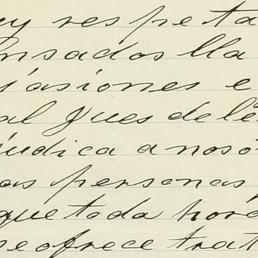 uy respeta
nsados lla
iasiones e
al Jues de le
iudica a nosó
as personas
que toda hora
se ofrece trat